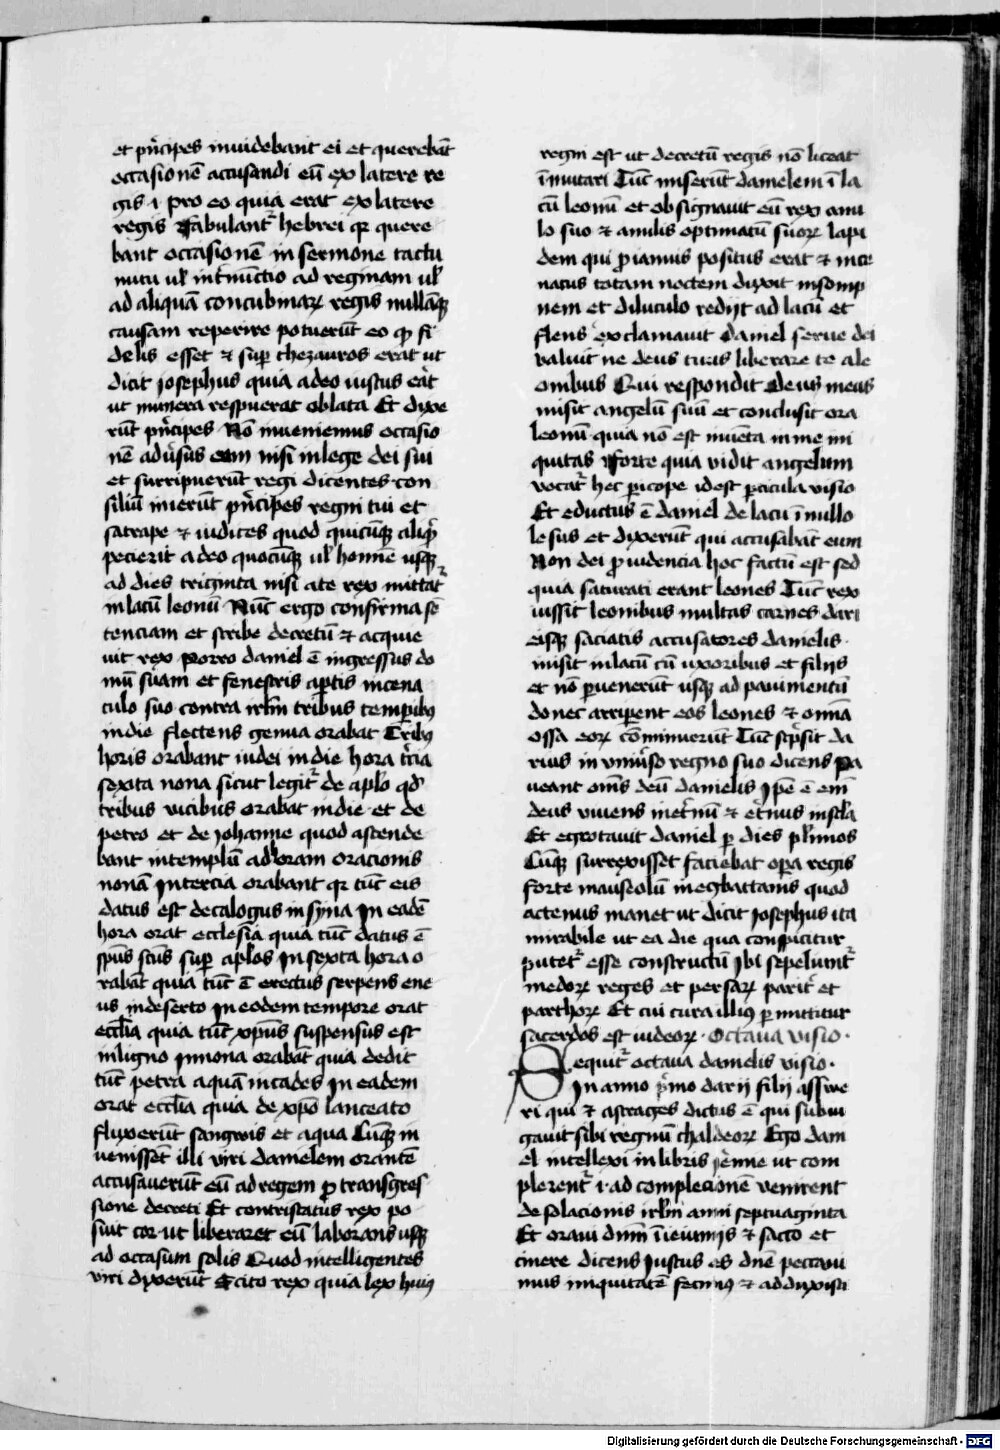 et pn̄cipes inuidebant ei et querebāt
occasionē accusandi eū ex latere re
gis .i. pro eo quia erat ex latere
regis Fabulant᷑ hebrei qr quere
bant occasionē in sermone tactu
nutu ul' int̄nunctio ad reginam ul'
ad aliquam concubinaꝝ regis nullāqꝫ
causam reperire potuerūt eo qꝫ fi
delis esset ⁊ suꝑ thezauros erat ut
dicit Josephus quia adeo iustus erāt
ut munera respuerat oblata Et dixe
rūt pn̄cipes Nō inueniemus occasio
nē adūsus eum nisi in lege dei sui
et surripuerūt regi dicentes con
siliū inierūt pn̄cipes regni tui et
satrape ⁊ iudices quod quicūqꝫ aliqͥd
pecierit a deo quocūqꝫ ul' homīe usqꝫ
ad dies triginta nisi a te rex mittat᷑
in lacū leonū Nūc ergo confirma sē
tenciam et scribe decretū ⁊ acquie
uit rex Porro daniel ē ingressus do
mū suam et fenestris aꝑtis in cena
culo suo contra irl̄m tribus temꝑibꝫ
in die flectens genua orabat Tribꝫ
horis orabant iudei in die hora t̄cia
sexta nona sicut legit᷑ de apl'o qd'
tribus uicibus orabat in die et de
petro et de Johanne quod ascende
bant in templū ad horam oracionis
nonā In tercia orabant qr tūc eis
datus est decalogus in syna In eadē
hora orat ecclesia quia tūc datus ē
sp̄us sc̄us suꝑ apl'os In sexta hora o
rabāt quia tūc ē erectus serpens ene
us in deserto In eodem tempore orat
eccl'ia quia tūc xp̄us suspensus est
in ligno In nona orabāt quia dedit
tūc petra aquā in cades In eadem
orat eccl'ia quia de xp̄o lanceato
fluxerūt sangwis et aqua Cūqꝫ in
uenissēt illi viri danielem orantē
accusauerūt eū ad regem ꝓ transgres
sione decreti Et contristatus rex po
suit cor ut liberaret eū laborans usqꝫ
ad occasum solis Quod intelligentes
viri dixerūt Scito rex quia lex huiꝯ
regni est ut decretū regis nō liceat
īmutari Tūc miserūt danielem ī la
cū leonū et obsignauit eū rex anu
lo suo ⁊ anulis optimatū suoꝝ lapi
dem qui ꝓ ianuis positus erat ⁊ ince
natus totam noctem duxit insomp
nem et diluculo redijt ad lacū et
flens exclamauit Daniel serue dei
valuit ne deus tuus liberare te a le
onibus Qui respondit Deus meus
misit angelū suū et conclusit ora
leonū quia nō est inuēta in me ini
quitas Forte quia vidit angelum
vocat᷑ hec ꝑicope id est ꝑticula visio
Et eductus ē daniel de lacu ī nullo
lesus et dixerūt qui accusabāt eum
Non dei ꝓuidencia hoc factū est sed
quia saturati erant leones Tūc rex
iussit leonibus multas carnes dari
eisqꝫ saciatis accusatores danielis
misit in lacū cū uxoribus et filijs
et nō ꝑuenerūt usqꝫ ad pauimentū
donec arriperent eos leones ⁊ omīa
ossa eoꝝ cōminuerūt Tūc scͥpsit da
rius in vniūso regno suo dicens Pa
ueant om̄s deū danielis Ipē ē em̄
deus viuens inet̄nū ⁊ et̄nus in sc̄la
Et egrotauit daniel ꝑ dies pl'imos
Cūqꝫ surrexisset faciebat oꝑa regis
forte mauseolū in egbattanis quod
actenus manet ut dicit Josephus ita
mirabile ut ea die qua conspicitur
putet᷑ esse constructū Ibi sepeliunt᷑
medoꝝ reges et persaꝝ parit̄ et
parthoꝝ Et cui cura illiꝯ ꝑmittitur
sacerdos est iudeoꝝ · Octaua visio ·
Sequit᷑ octaua danielis visio ·
In anno pͥmo darij filij asswe
ri qui ⁊ astrages dictus ē qui subiu
gauit sibi regnū chaldeoꝝ Ego dani
el intellexi in libris jer̄mie ut com
plerent᷑ .i. ad complecionē venirent
desolacionis irl̄m anni septuaginta
Et oraui dn̄m ī ieiunijs ⁊ sacco et
cinere dicens Justus es dn̄e peccaui
mus iniquitatē fecimꝯ ⁊ adduxisti
Digitalisierung gefördert durch die Deutsche Forschungsgemeinschaft - DFG